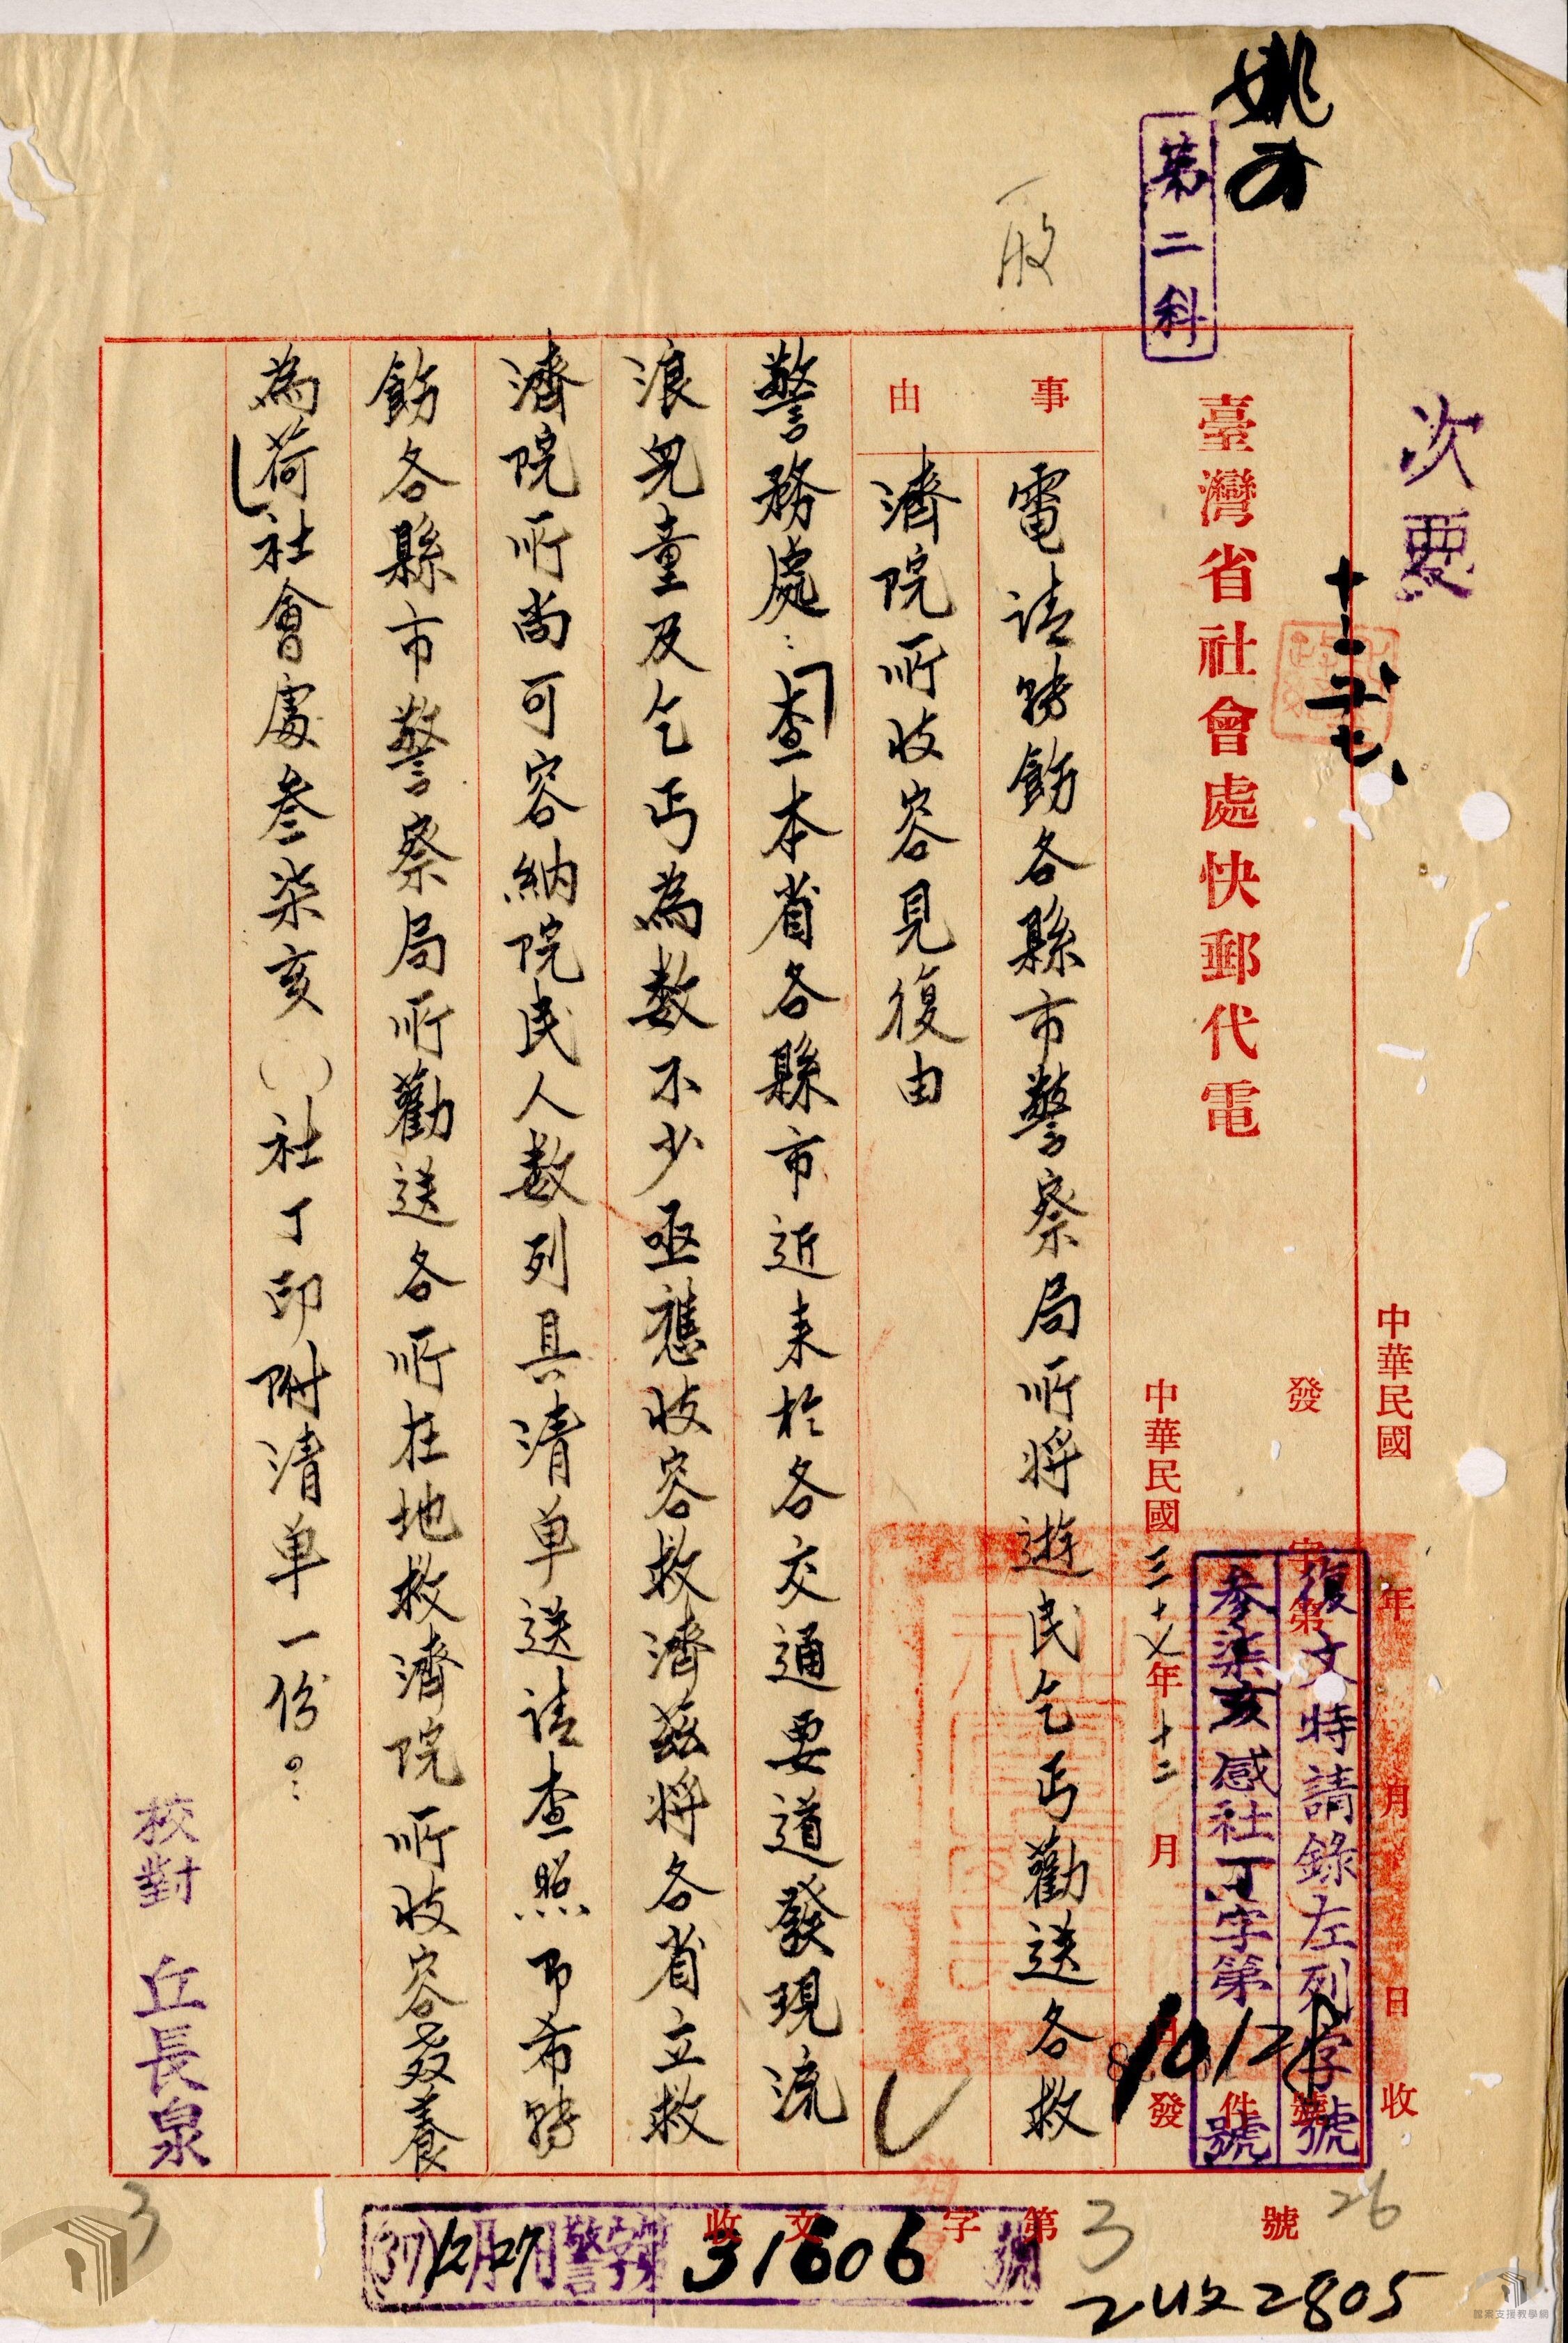 次要
中華民國 年 月 日 收
十二 廿七
姚
第二科
臺灣省社會處快郵代電
發 字第 號
件
復文時請錄左列字號
參柒亥感社丁字第10121號
中華民國三十七年十二月 日發
事由
電請轉飭各縣市警察局所將遊民乞丐勸送各救
濟院所收容見復由
警務處：查本省各縣市近來於各交通要道發現流
浪兒童及乞丐為数不少亟應收容救濟茲將各省立救
濟院所尚可容納院民人数列具清单送請查照即希轉
飭各縣市警察局所勸送各所在地救濟院所收容教養
為荷社會處叁柒亥（）社丁印附清单一份。
校對 丘長泉
收文 字第 號
(37)12月27日警字第31606號
3
26
3
2收2805
檔案支援教學網